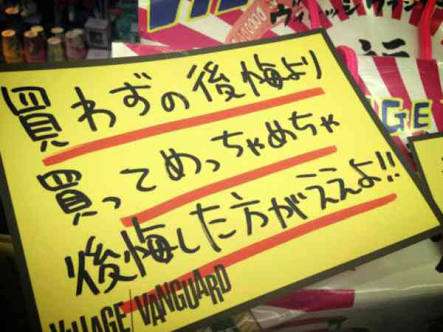 買わずの後悔より
買ってめっちゃめちゃ
後悔した方がええよ!!
VILLAGE/VANGUARD